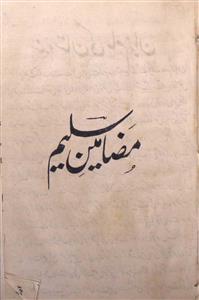 مضامین سلیم